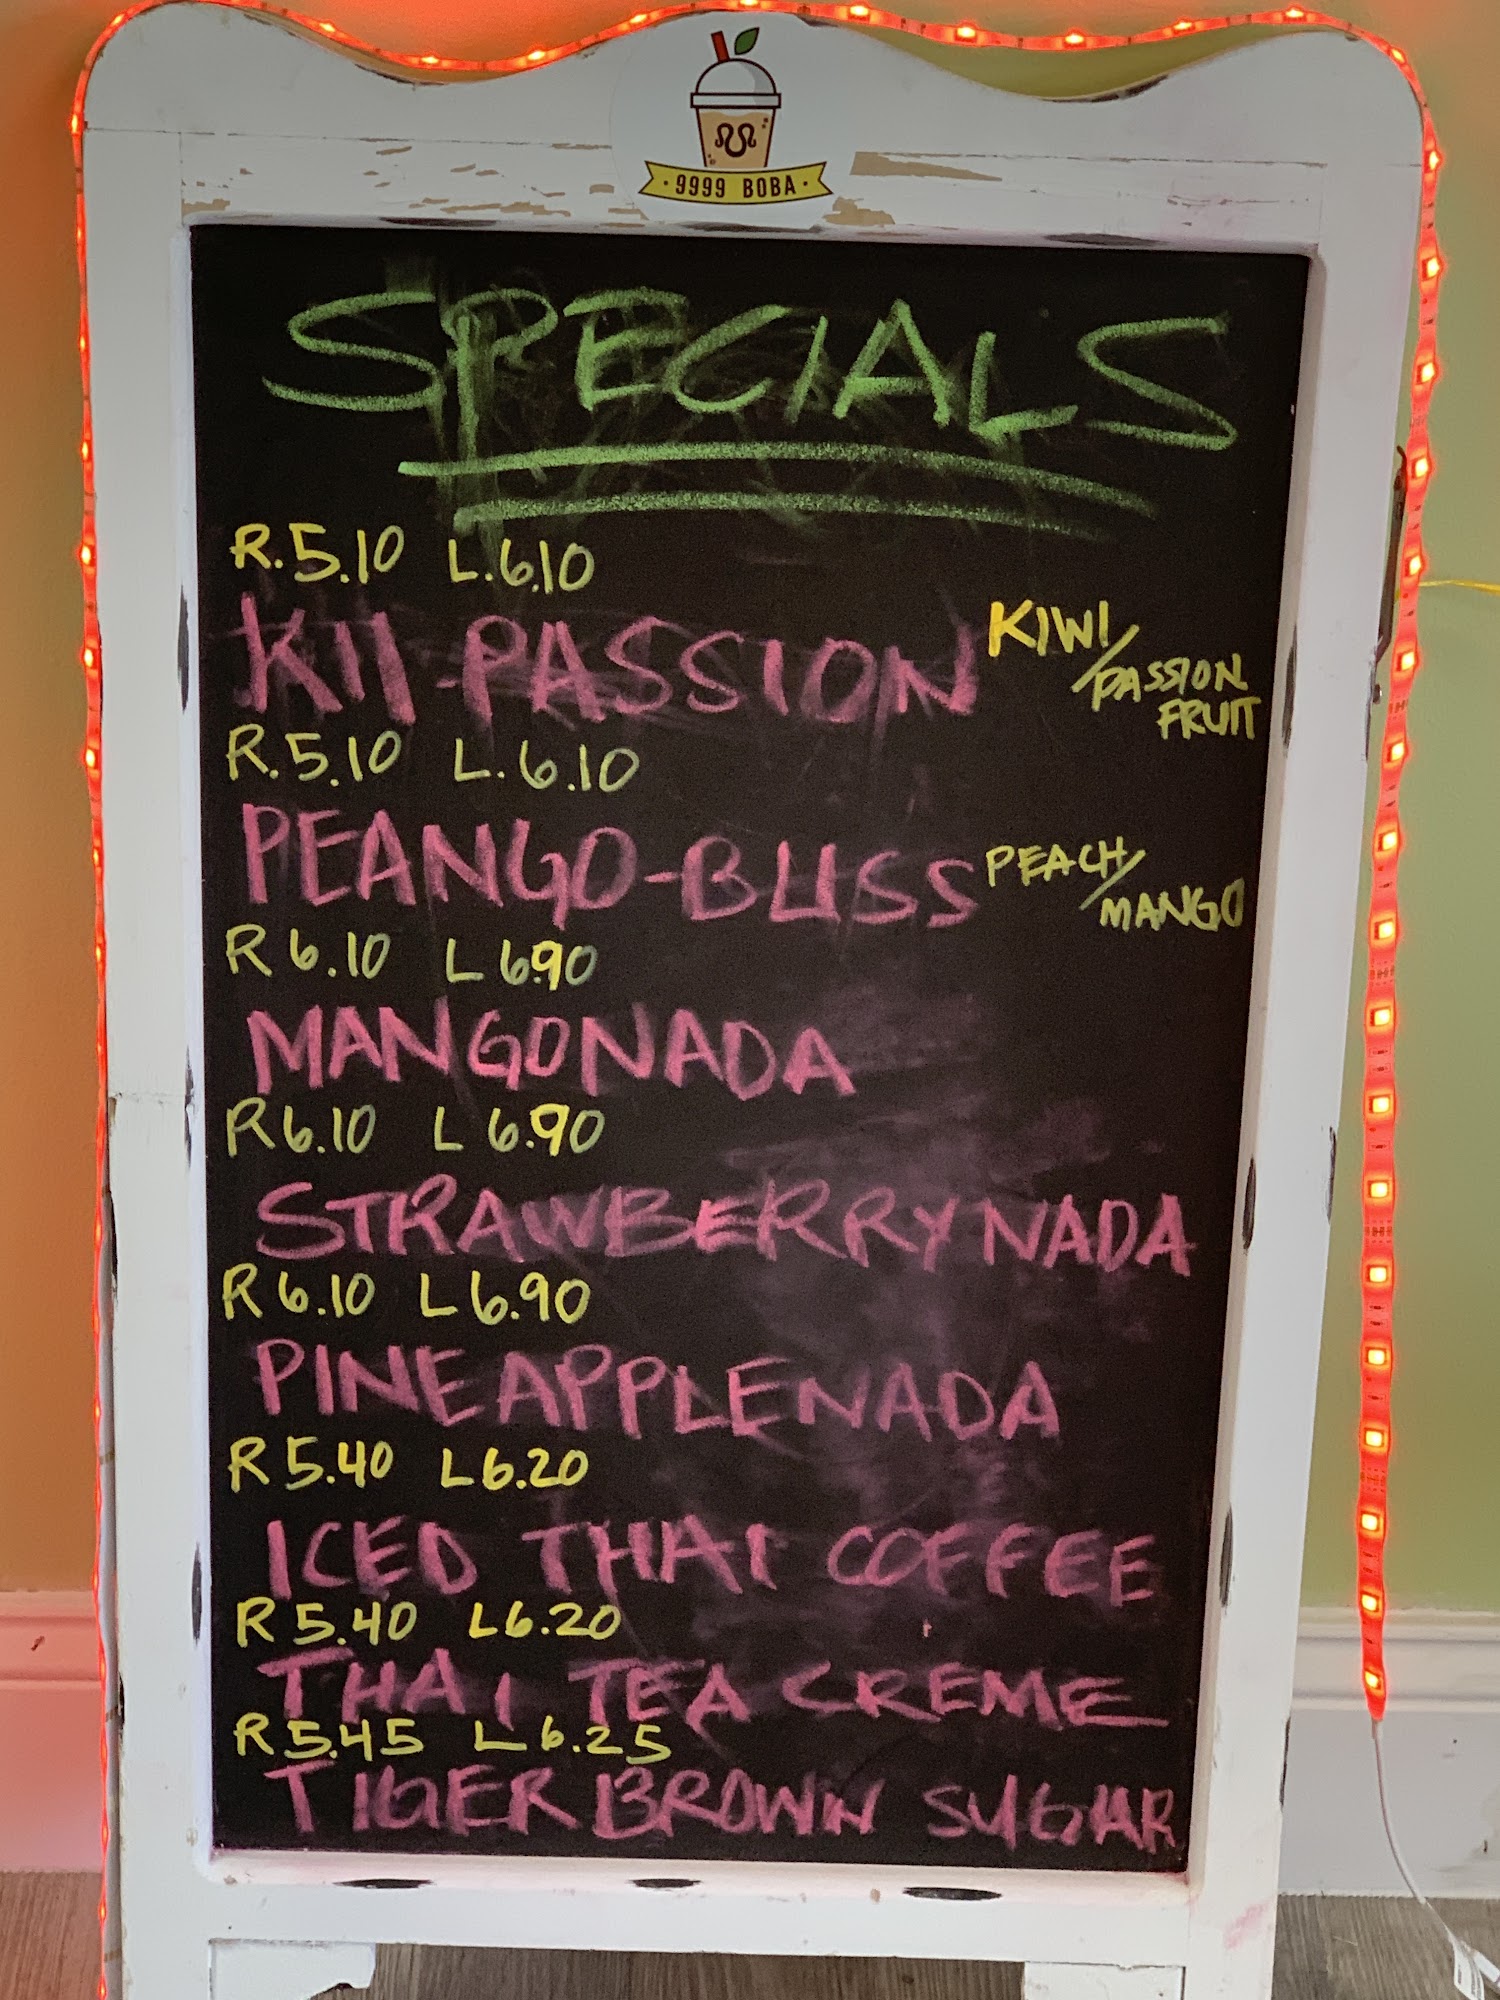 · 9999 BOBA ·
SPECIALS
R. 5.10 L. 6.10
KII-PASSION KIWI/
PASSION
FRUIT
R. 5.10 L. 6.10
PEANGO-BLISS PEACH/
MANGO
R 6.10 L 6.90
MANGONADA
R 6.10 L 6.90
STRAWBERRYNADA
R 6.10 L 6.90
PINEAPPLENADA
R 5.40 L 6.20
ICED THAI COFFEE
R 5.40 L 6.20
THAI TEA CREME
R 5.45 L 6.25
TIGER BROWN SUGAR